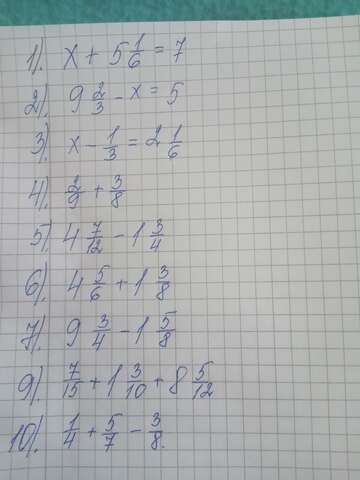 1). x + 5 1/6 = 7
2). 9 2/3 - x = 5
3). x - 1/3 = 2 1/6
4). 2/9 + 3/8
5) 4 7/12 - 1 3/4
6). 4 5/6 + 1 3/8
7). 9 3/4 - 1 5/8
9). 7/15 + 1 3/10 + 8 5/12
10). 1/4 + 5/7 - 3/8.